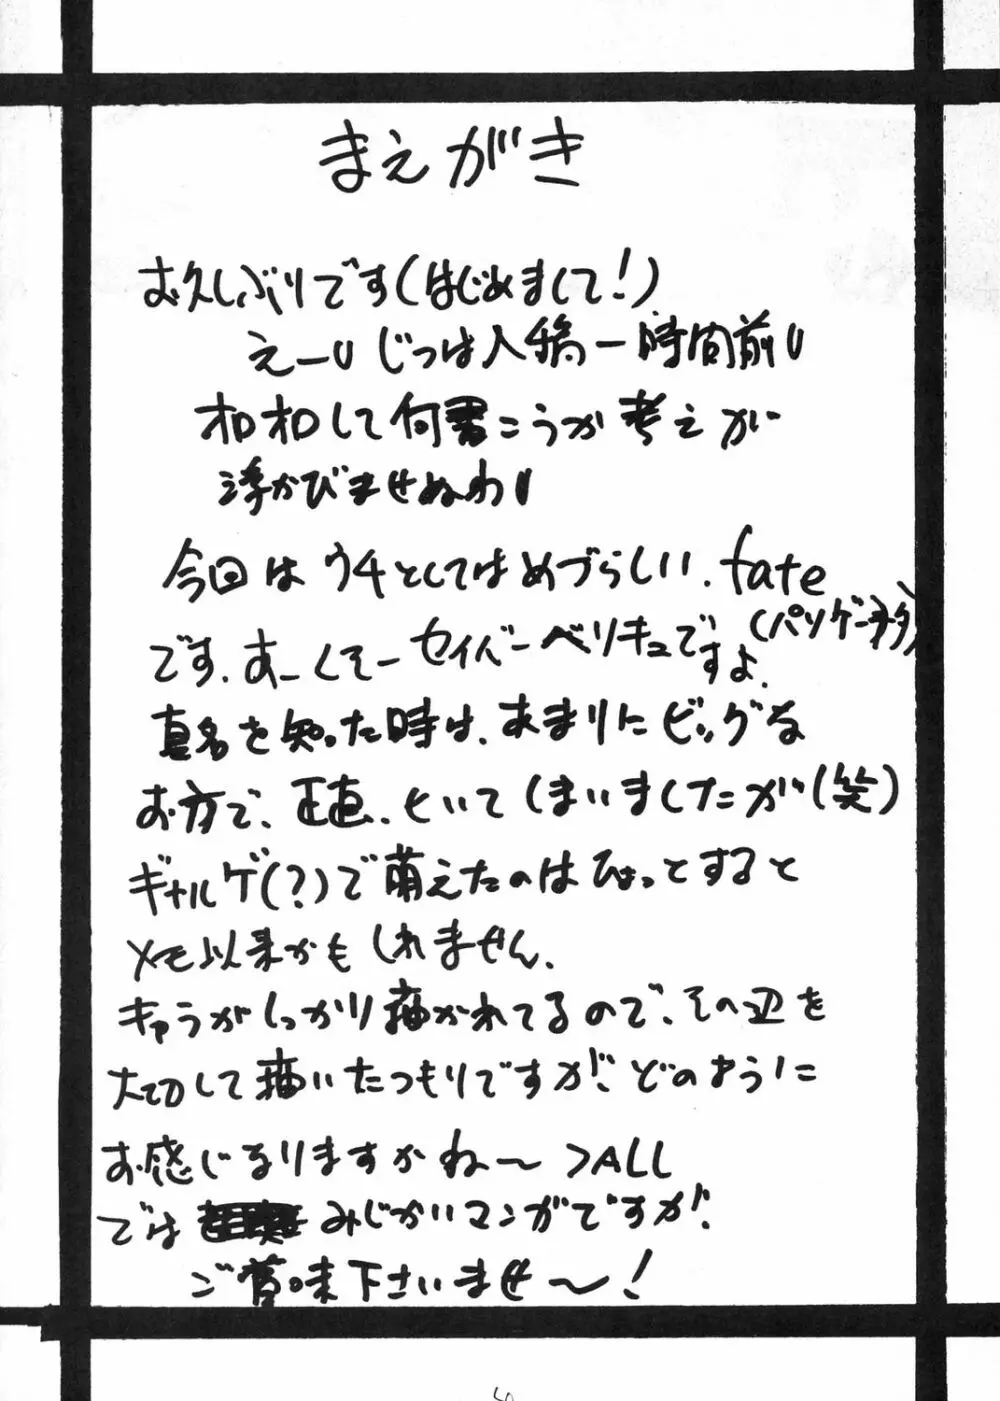 まえがき
お久しぶりです(はじめまして!)
えーU じつは入稿一時間前U
オロオロして何書こうか考えが
浮かびませぬわU
今回はウチとしてはめづらしい、fate
(パソゲー)
です。あーくそー セイバーベリキュですよ。
真名を知った時は、あまりにビッグな
お方で、正直、といてしまいましたが(笑)
ギャルゲ(?)で萌えたのはひょっとすると
メモ以来かもしれません。
キャラがしっかり描かれてるので、その辺を
大切して描いたつもりですが、どのように
お感じなりますかね〜 >ALL
では みじかいマンガですが、
ご賞味下さいませ〜!